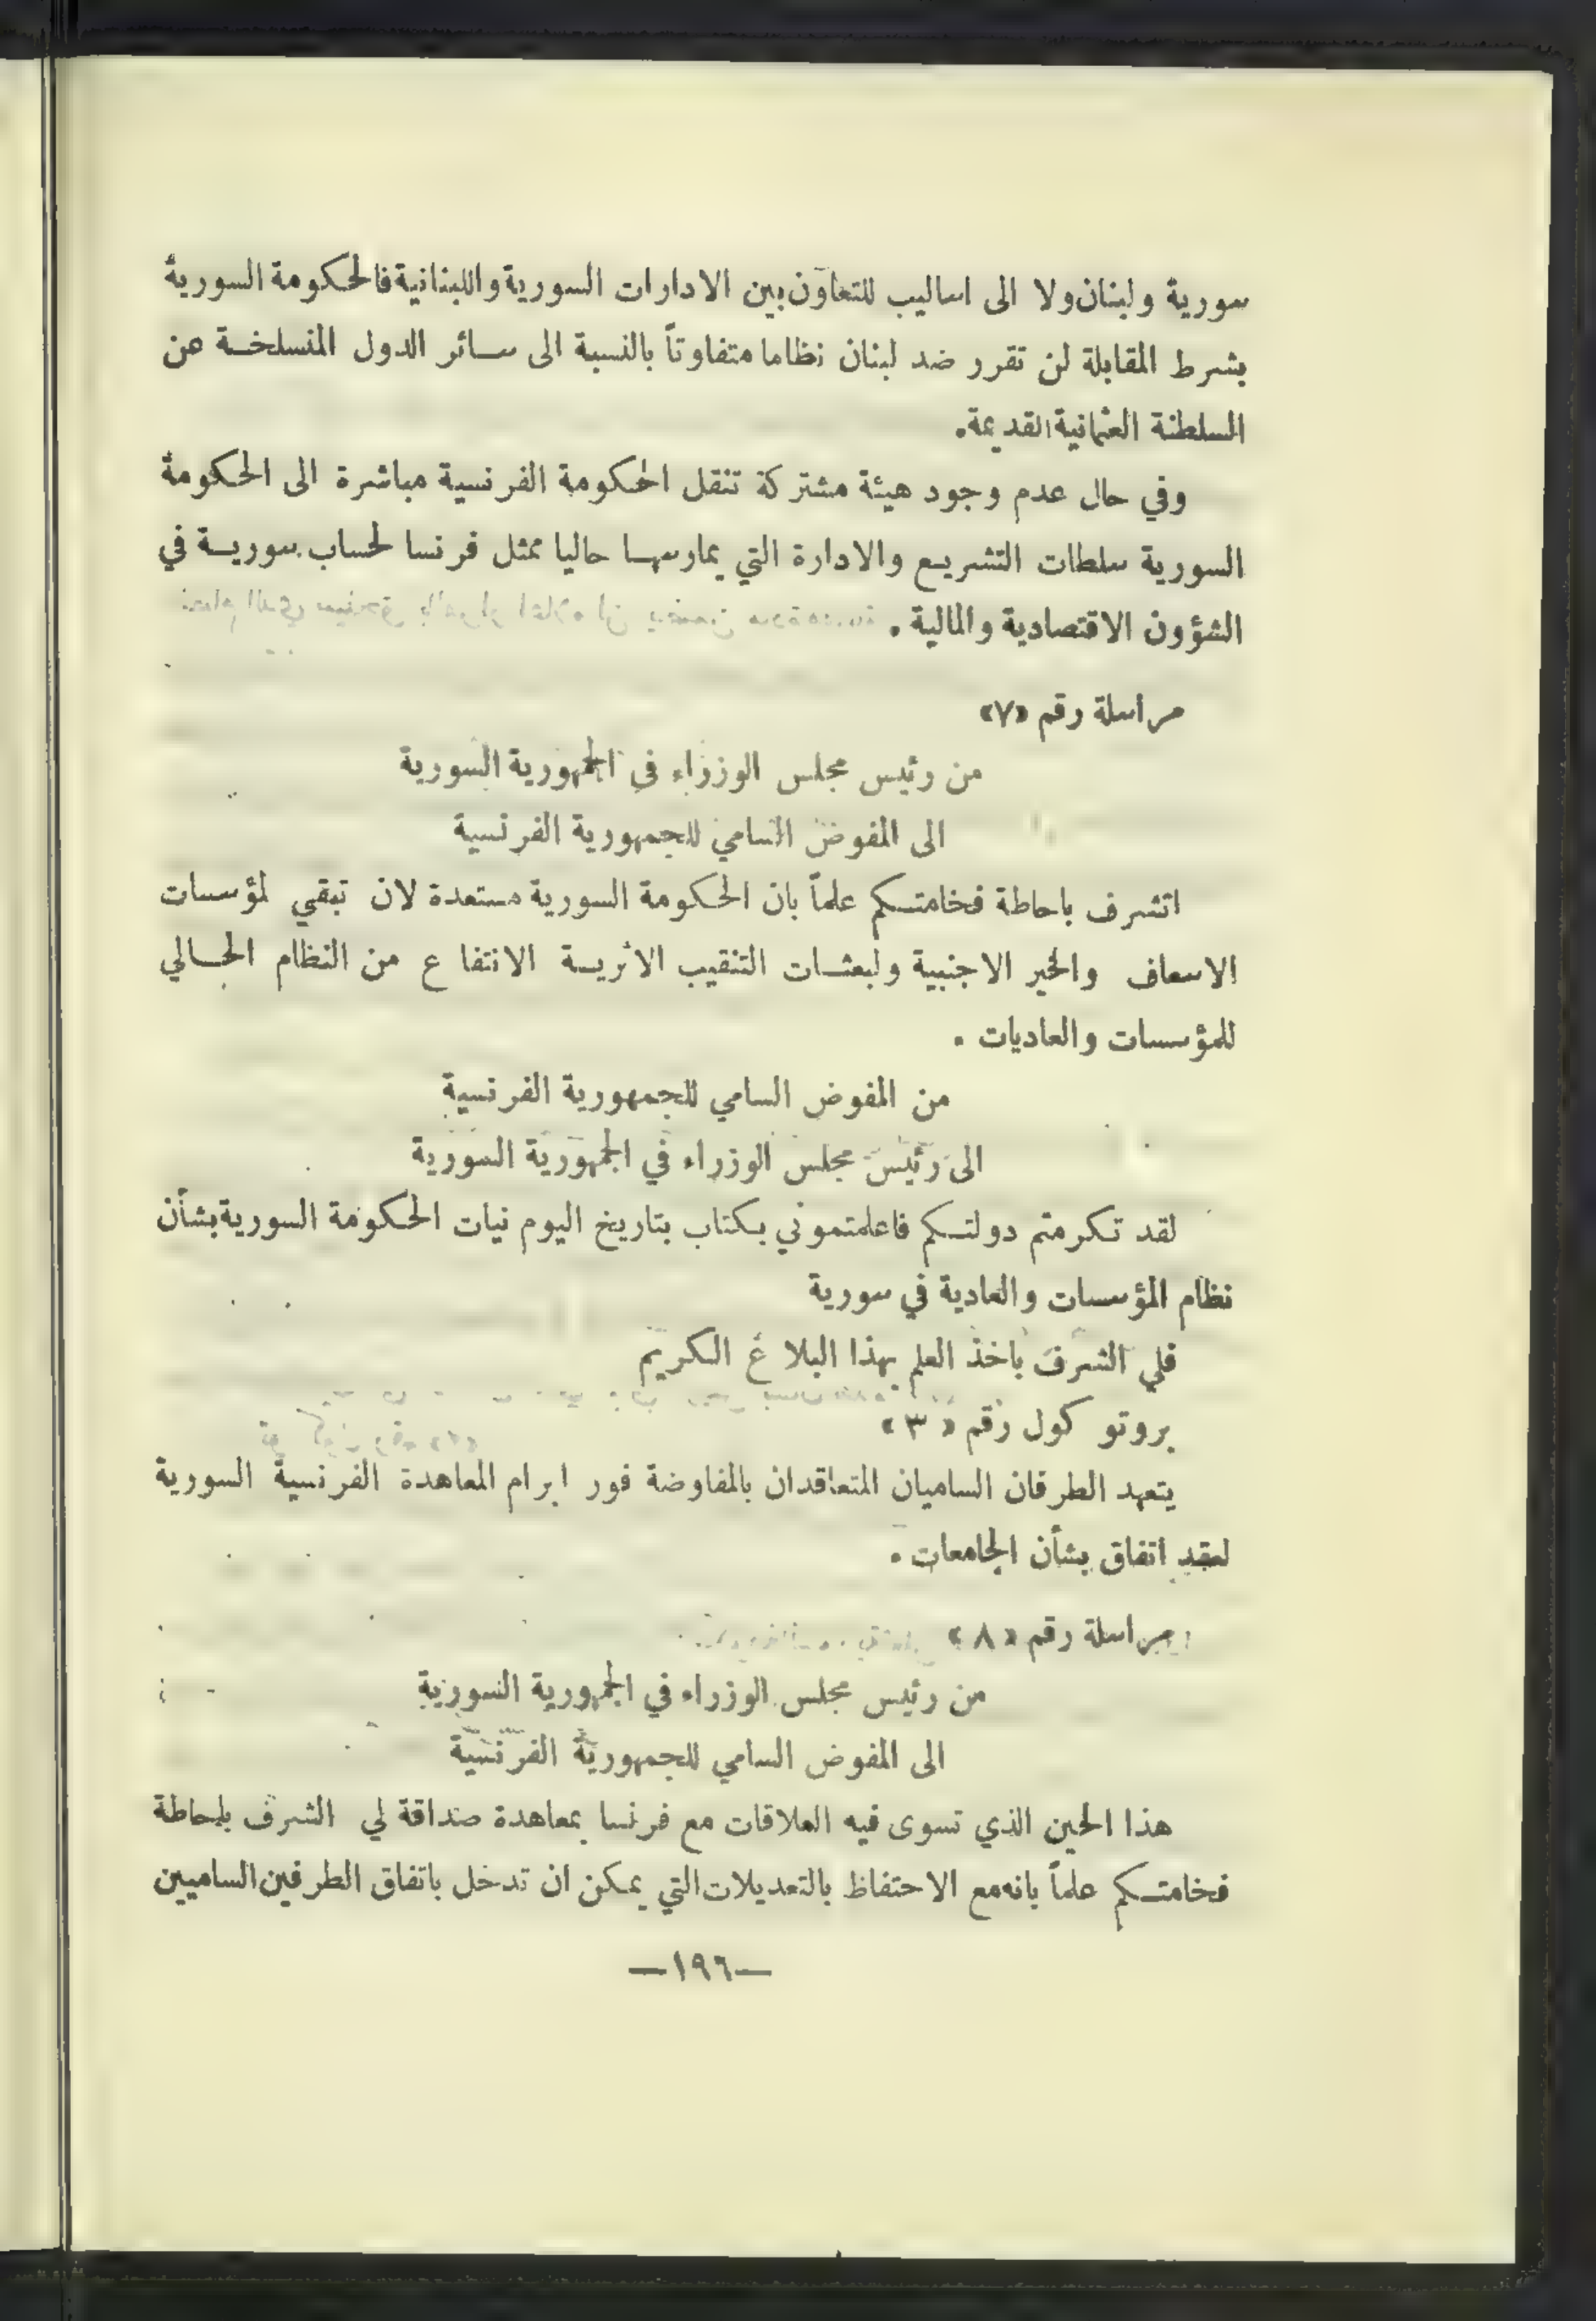 سورية ولبنان ولا الى اساليب للتعاون بين الادارات السورية واللبنانية فالحكومة السورية
بشرط المقابلة لن تقرر ضد لبنان نظاما متفاوتاً بالنسبة الى سائر الدول المنسلخة عن
السلطنة العثمانية القديمة.
وفي حال عدم وجود هيئة مشتركة تنقل الحكومة الفرنسية مباشرة الى الحكومة
السورية سلطات التشريع والادارة التي يمارسها حاليا ممثل فرنسا لحساب سورية في
الشؤون الاقتصادية والمالية .
مراسلة رقم «٧»
من رئيس مجلس الوزراء في الجمهورية السورية
الى المفوض السامي للجمهورية الفرنسية
اتشرف باحاطة فخامتكم علماً بان الحكومة السورية مستعدة لان تبقي لمؤسسات
الاسعاف والخير الاجنبية ولبعثات التنقيب الاثرية الانتفاع من النظام الحالي
للمؤسسات والعاديات .
من المفوض السامي للجمهورية الفرنسية
الى رئيس مجلس الوزراء في الجمهورية السورية
لقد تكرمتم دولتكم فاعلمتموني بكتاب بتاريخ اليوم نيات الحكومة السورية بشأن
نظام المؤسسات والعادية في سورية
فلي الشرف باخذ العلم بهذا البلاغ الكريم
بروتو كول رقم « ٣ »
يتعهد الطرفان الساميان المتعاقدان بالمفاوضة فور ابرام المعاهدة الفرنسية السورية
لعقد اتفاق بشأن الجامعات .
مراسلة رقم « ٨ »
من رئيس مجلس الوزراء في الجمهورية السورية
الى المفوض السامي للجمهورية الفرنسية
هذا الحين الذي تسوى فيه العلاقات مع فرنسا بمعاهدة صداقة لي الشرف باحاطة
فخامتكم علماً بانه مع الاحتفاظ بالتعديلات التي يمكن ان تدخل باتفاق الطرفين الساميين
—١٩٦—